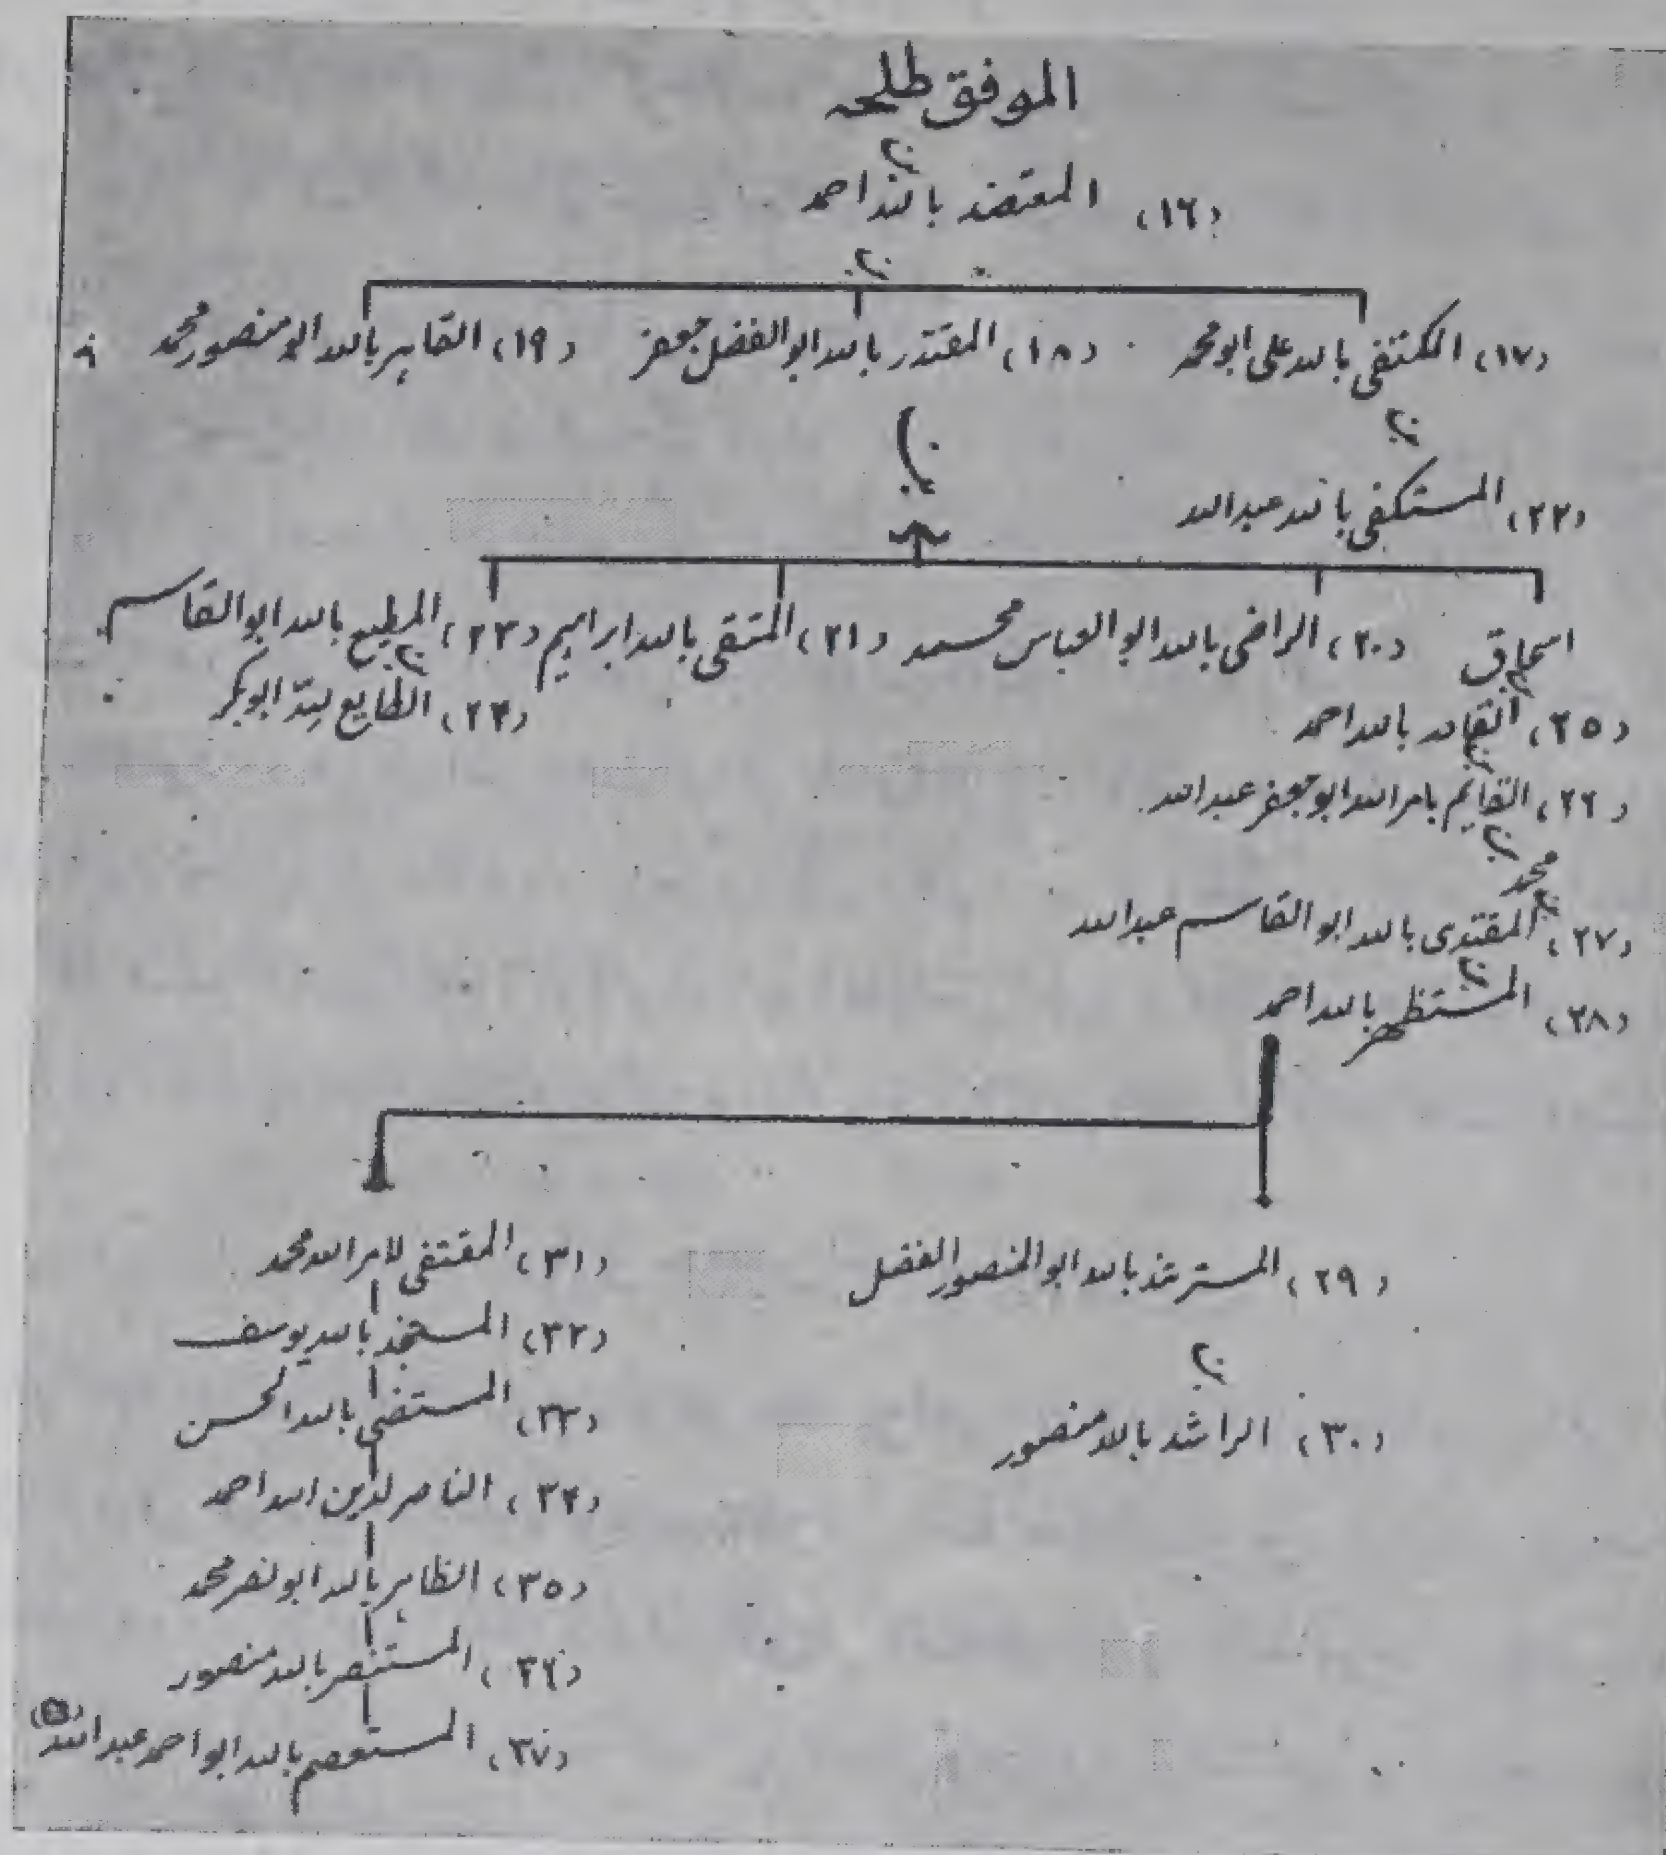 الموفق طلحہ
بن
(۱۶) المعتضد باللہ احمد
بن
(۱۷) المکتفی باللہ علی ابو محمد (۱۸) المقتدر باللہ ابو الفضل جعفر (۱۹) القاہر باللہ ابو منصور محمد
بن
(۲۲) المستکفی باللہ عبداللہ
اسحاق (۲۰) الراضی باللہ ابو العباس محمد (۲۱) المتقی باللہ ابراہیم (۲۳) المطیع باللہ ابو القاسم
بن
(۲۵) القادر باللہ احمد (۲۴) الطایع للہ ابوبکر
بن
(۲۶) القایم بامراللہ ابو جعفر عبداللہ
بن
محمد
بن
(۲۷) المقتدی باللہ ابو القاسم عبداللہ
بن
(۲۸) المستظہر باللہ احمد
(۲۹) المسترشد باللہ ابو المنصور الفضل
بن
(۳۰) الراشد باللہ منصور
(۳۱) المقتفی لامراللہ محمد
(۳۲) المستنجد باللہ یوسف
(۳۳) المستضی باللہ الحسن
(۳۴) الناصر لدین اللہ احمد
(۳۵) الظاہر باللہ ابو نصر محمد
(۳۶) المستنصر باللہ منصور
(۳۷) المستعصم باللہ ابو احمد عبداللہ